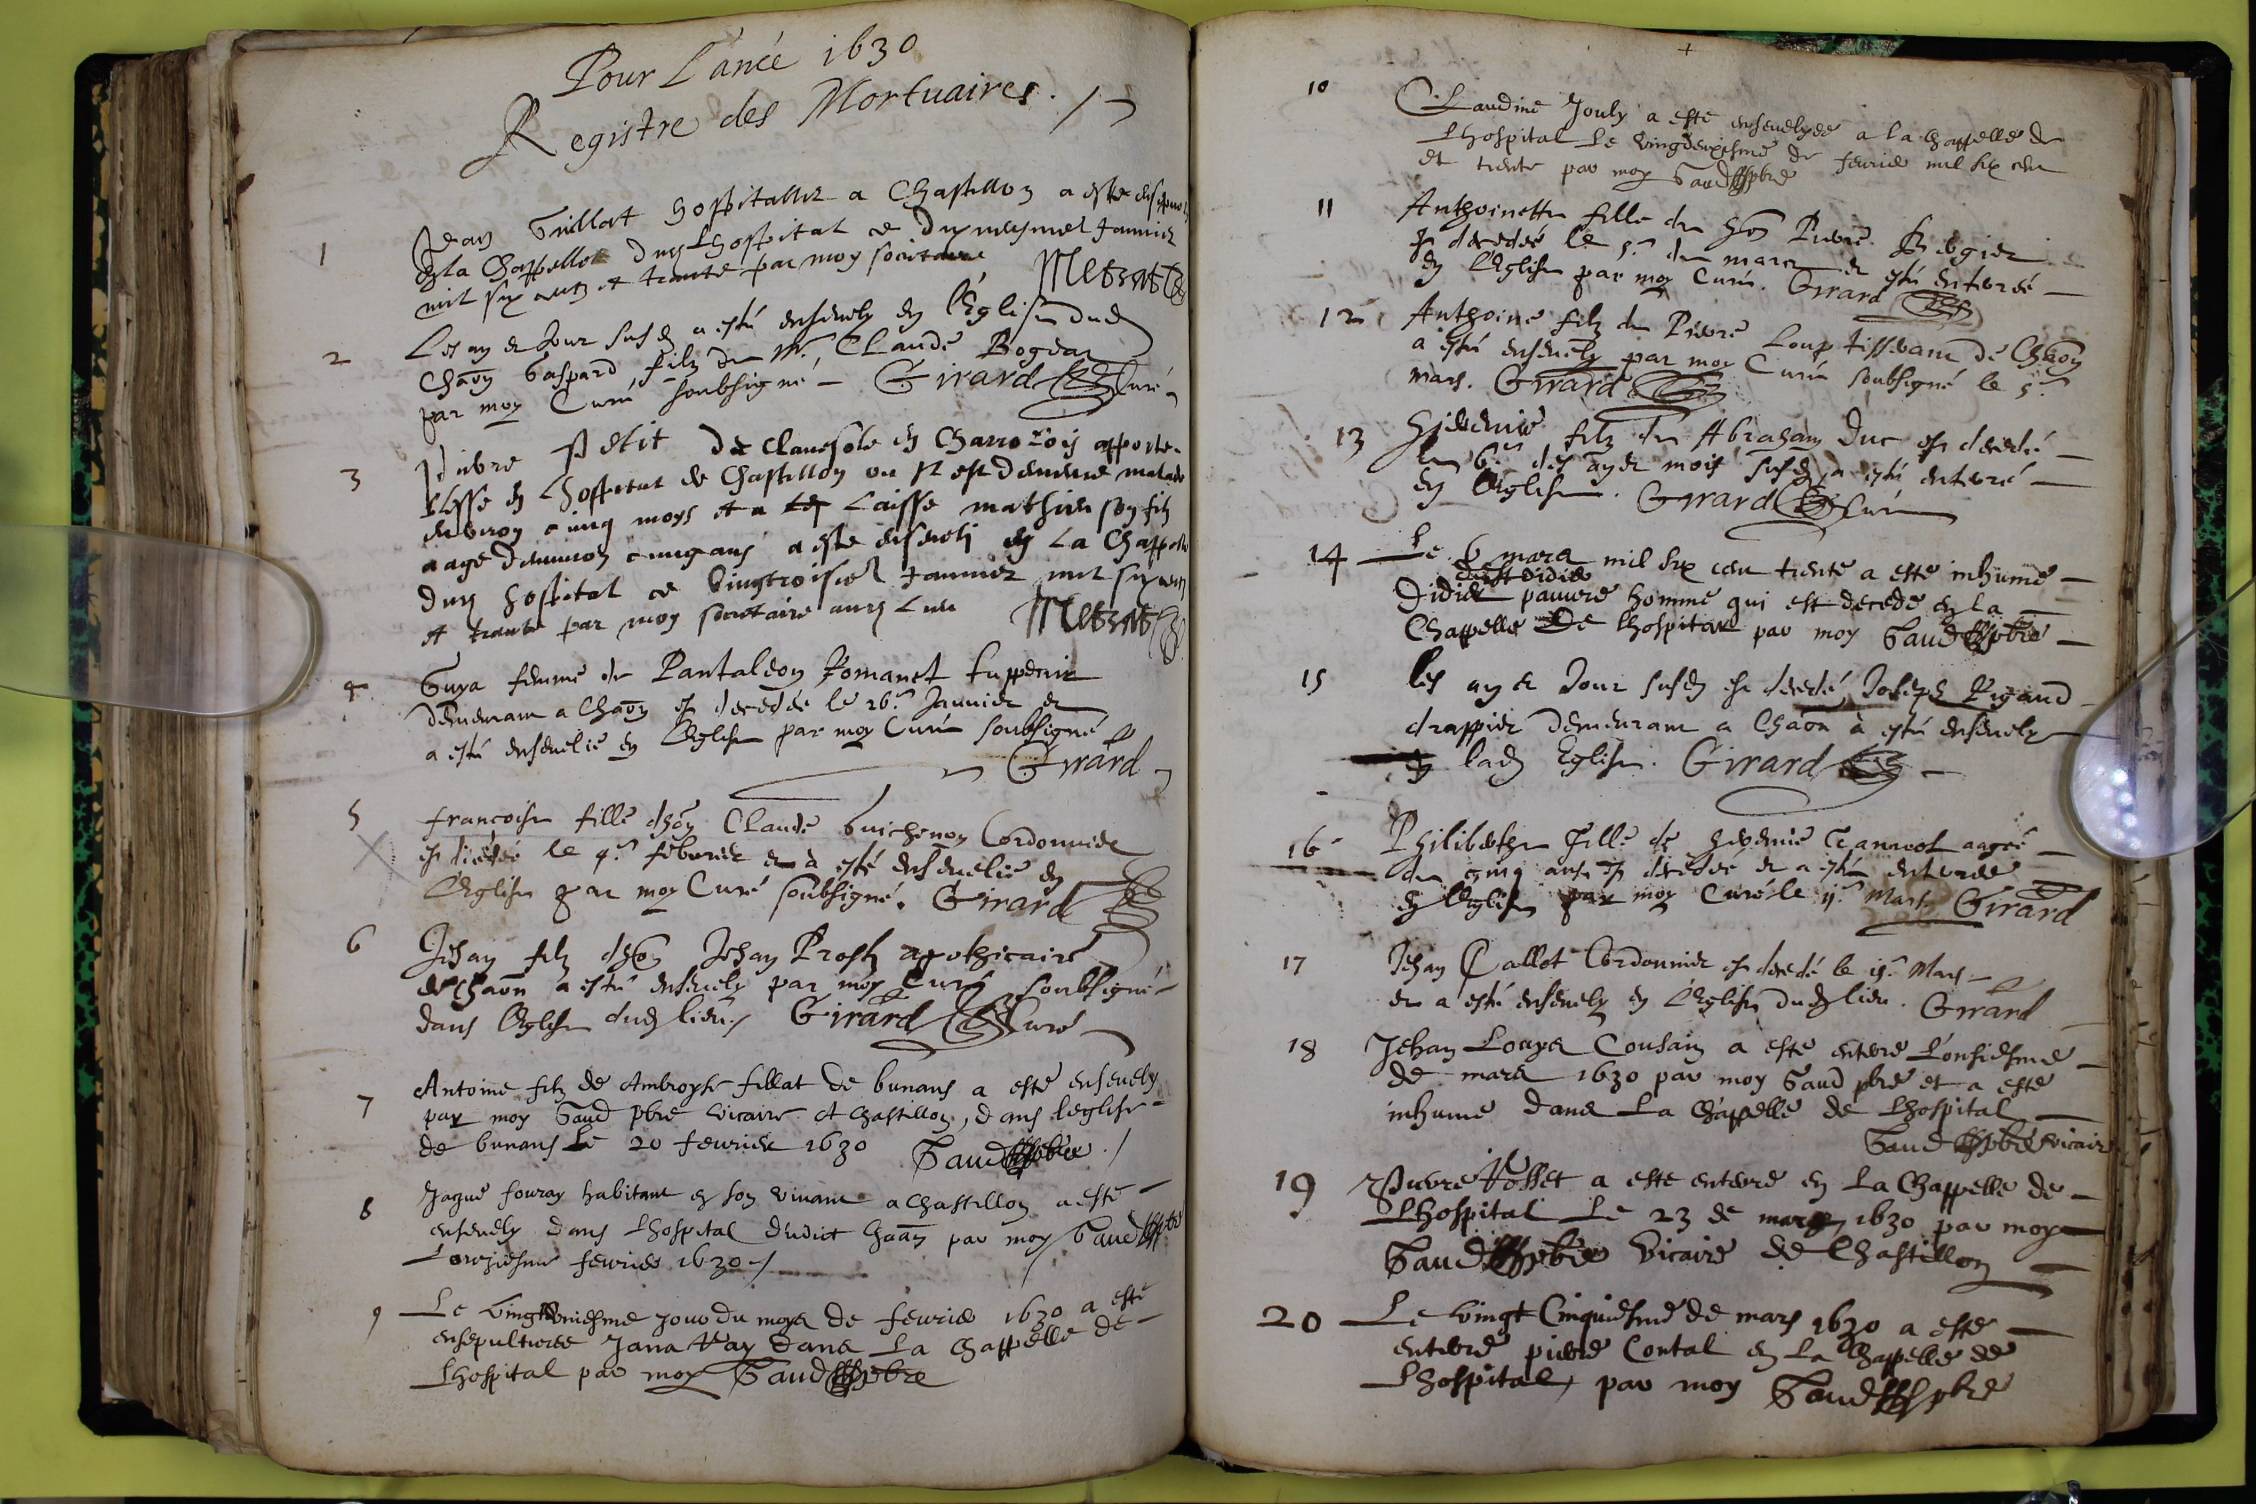 Pour L'anée 1630
Registre des Mortuaires.
1
Jean Guillot hospitallier a Chastillon a este
en la Chappelle dud Lhospital ce Januier
mil six cens et trante par moy secretaire
2
Les an et Jour susd a esté enseuely en l'Eglise dud
Chaon Gaspard filz de Mre Claude
par moy Curé soubsigné Girard Curé
3
Pierre Petit de en Charrolois apporte
blesse en Lhospital de Chastillon ou il est demeuré malade
enuiron cinq moys et a Laisse mathieu son filz
aage denuiron cinq ans a este enseueli en La Chappelle
dud hospital ce Vingtroisie Januier mil six cens
et trante par moy secretaire aud Lieu
4
Guya femme de Pantaleon Romanet
demeurant a Chaon est decedée le 26e Januier et
a esté enseuelie en l'Eglise par moy Curé soubsigné
Girard
5
francoise fille d'hon Claude Guichenon Cordonnier
est decedée le 4e feburier et à esté enseuelie en
l'Eglise par moy Curé soubsigné. Girard
6
Jehan filz d'hon Jehan Prost apothicaire
de Chaon a esté enseuely par moy Curé soubsigné
dans l'Eglise dud lieu Girard Curé
7
Antoine filz de Ambroyse fillat de bunans a esté enseuely
par moy Gaud pbre vicaire de Chastillon, dans leglise
de bunans Le 20 feurier 1630 Gaud pbre
8
Jaque fouray habitant en son viuant a Chastillon a esté
enseuely dans Lhospital dudict Chaon par moy Gaud pbre
feurier 1630
9
Le Jour du moys de feurier 1630 a esté
ensepulturee Jana Vay dans La Chappelle de
Lhospital par moy Gaud pbre
10
Claudine Jouly a este enseuelyee a la Chappelle de
Lhospital Le de feurier mil six cen
et trente par moy Gaud pbre
11
Anthoinette fille de hon Pierre Regier
est decedée le 5e de mars et esté enterrée
en l'Eglise par moy Curé. Girard
12
Anthoine filz de Pierre Loup tisserant de Chaon
a esté enseuely par moy Curé soubsigné le 5e
mars. Girard
13
filz de Abraham Duc est decedé
le 6e des an et mois susd a esté enterré
en l'Eglise. Girard Curé
14
Le 6 mars mil six cen trente a esté inhumé
Didier pauure homme qui est decede en la
Chappelle de Lhospital par moy Gaud pbre
15
Les an et Jour susd est decedé Joseph Rigaud
drappier demeurant a Chaon à esté enseuely
en lad Eglise. Girard
16
Philiberthe fille de aagée
de cinq ans est decedée et a esté enterrée
en l'Eglise par moy Curé le Mars Girard
17
Jehan Callot Cordonnier est decedé le Mars
et a esté enseuely en l'Eglise dud lieu. Girard
18
Jehan Louys Cousain a este enterre L'onsiesme
de mars 1630 par moy Gaud pbre et a esté
inhume dans La Chappelle de Lhospital
Gaud pbre vicaire
19
Pierre Rosset a este enterre en La Chappelle de
Lhospital Le 23 de mars 1630 par moy
Gaud pbre Vicaire de Chastillon
20
Le Vingt Cinquiesme de mars 1630 a este
enterre pierre Contal en La Chappelle de
Lhospital, par moy Gaud pbre